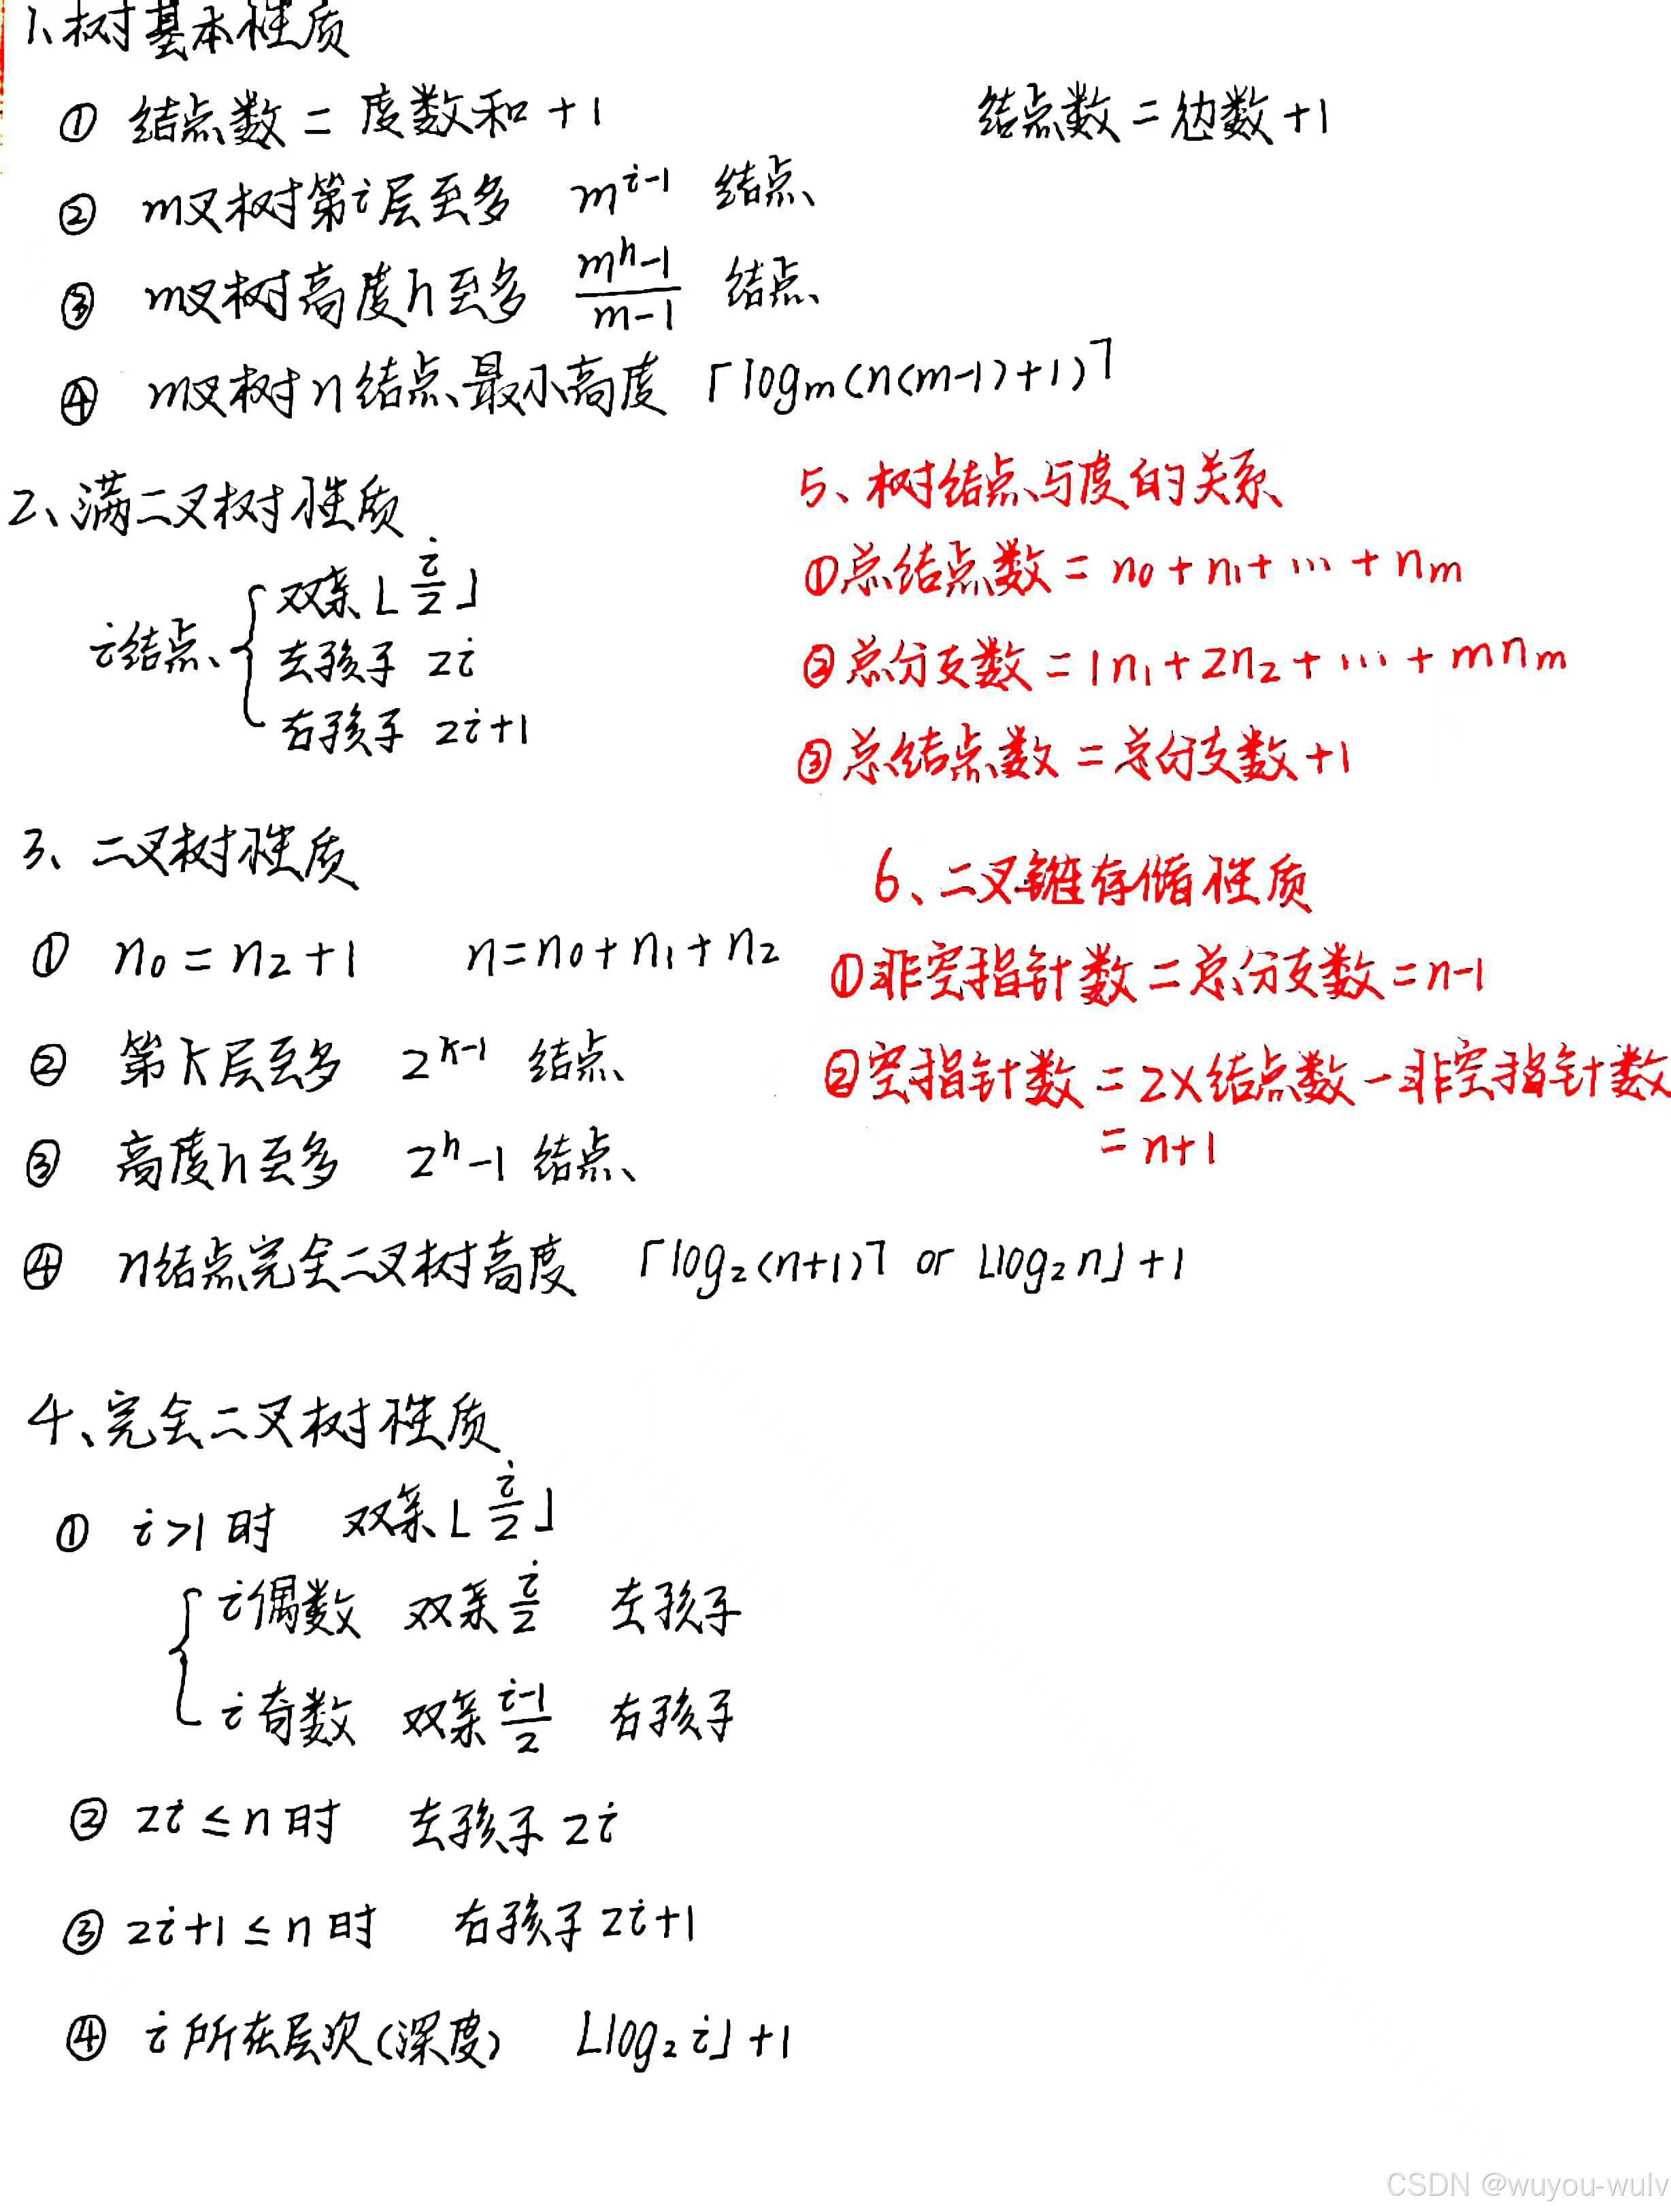 1、树基本性质
① 结点数 = 度数和 + 1
结点数 = 边数 + 1
② m叉树第i层至多 m^{i-1} 结点
③ m叉树高度h至多 \frac{m^h-1}{m-1} 结点
④ m叉树n结点最小高度 ⌈log_m(n(m-1)+1)⌉
2、满二叉树性质
i结点
双亲⌊\frac{i}{2}⌋
左孩子 2i
右孩子 2i+1
3、二叉树性质
① n₀ = n₂ + 1 n = n₀ + n₁ + n₂
② 第k层至多 2^{k-1} 结点
③ 高度h至多 2^h-1 结点
④ n结点完全二叉树高度 ⌈log₂(n+1)⌉ or ⌊log₂n⌋+1
4、完全二叉树性质
① i>1时 双亲⌊\frac{i}{2}⌋
i偶数 双亲\frac{i}{2} 左孩子
i奇数 双亲\frac{i-1}{2} 右孩子
② 2i≤n时 左孩子2i
③ 2i+1≤n时 右孩子2i+1
④ i所在层次(深度) ⌊log₂i⌋+1
5、树结点与度的关系
①总结点数 = n₀ + n₁ + … + n_m
②总分支数 = 1n₁ + 2n₂ + … + mn_m
③总结点数 = 总分支数 + 1
6、二叉链存储性质
①非空指针数 = 总分支数 = n-1
②空指针数 = 2×结点数 - 非空指针数
= n+1
CSDN @wuyou-wulv